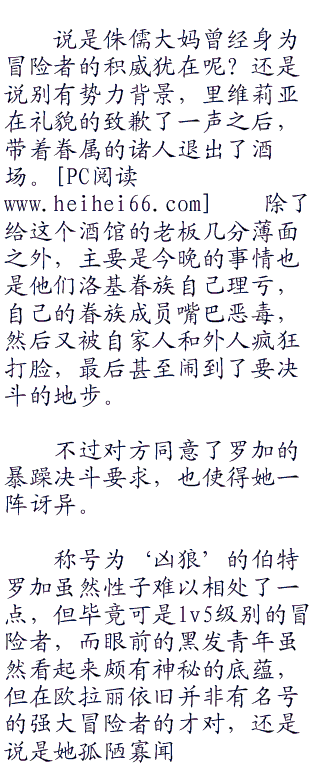 说是侏儒大妈曾经身为
冒险者的积威犹在呢？还是
说别有势力背景，里维莉亚
在礼貌的致歉了一声之后，
带着眷属的诸人退出了酒
场。[PC阅读
www.heihei66.com]    除了
给这个酒馆的老板几分薄面
之外，主要是今晚的事情也
是他们洛基眷族自己理亏，
自己的眷族成员嘴巴恶毒，
然后又被自家人和外人疯狂
打脸，最后甚至闹到了要决
斗的地步。
不过对方同意了罗加的
暴躁决斗要求，也使得她一
阵讶异。
称号为‘凶狼’的伯特
罗加虽然性子难以相处了一
点，但毕竟可是lv5级别的冒
险者，而眼前的黑发青年虽
然看起来颇有神秘的底蕴，
但在欧拉丽依旧并非有名号
的强大冒险者的才对，还是
说是她孤陋寡闻